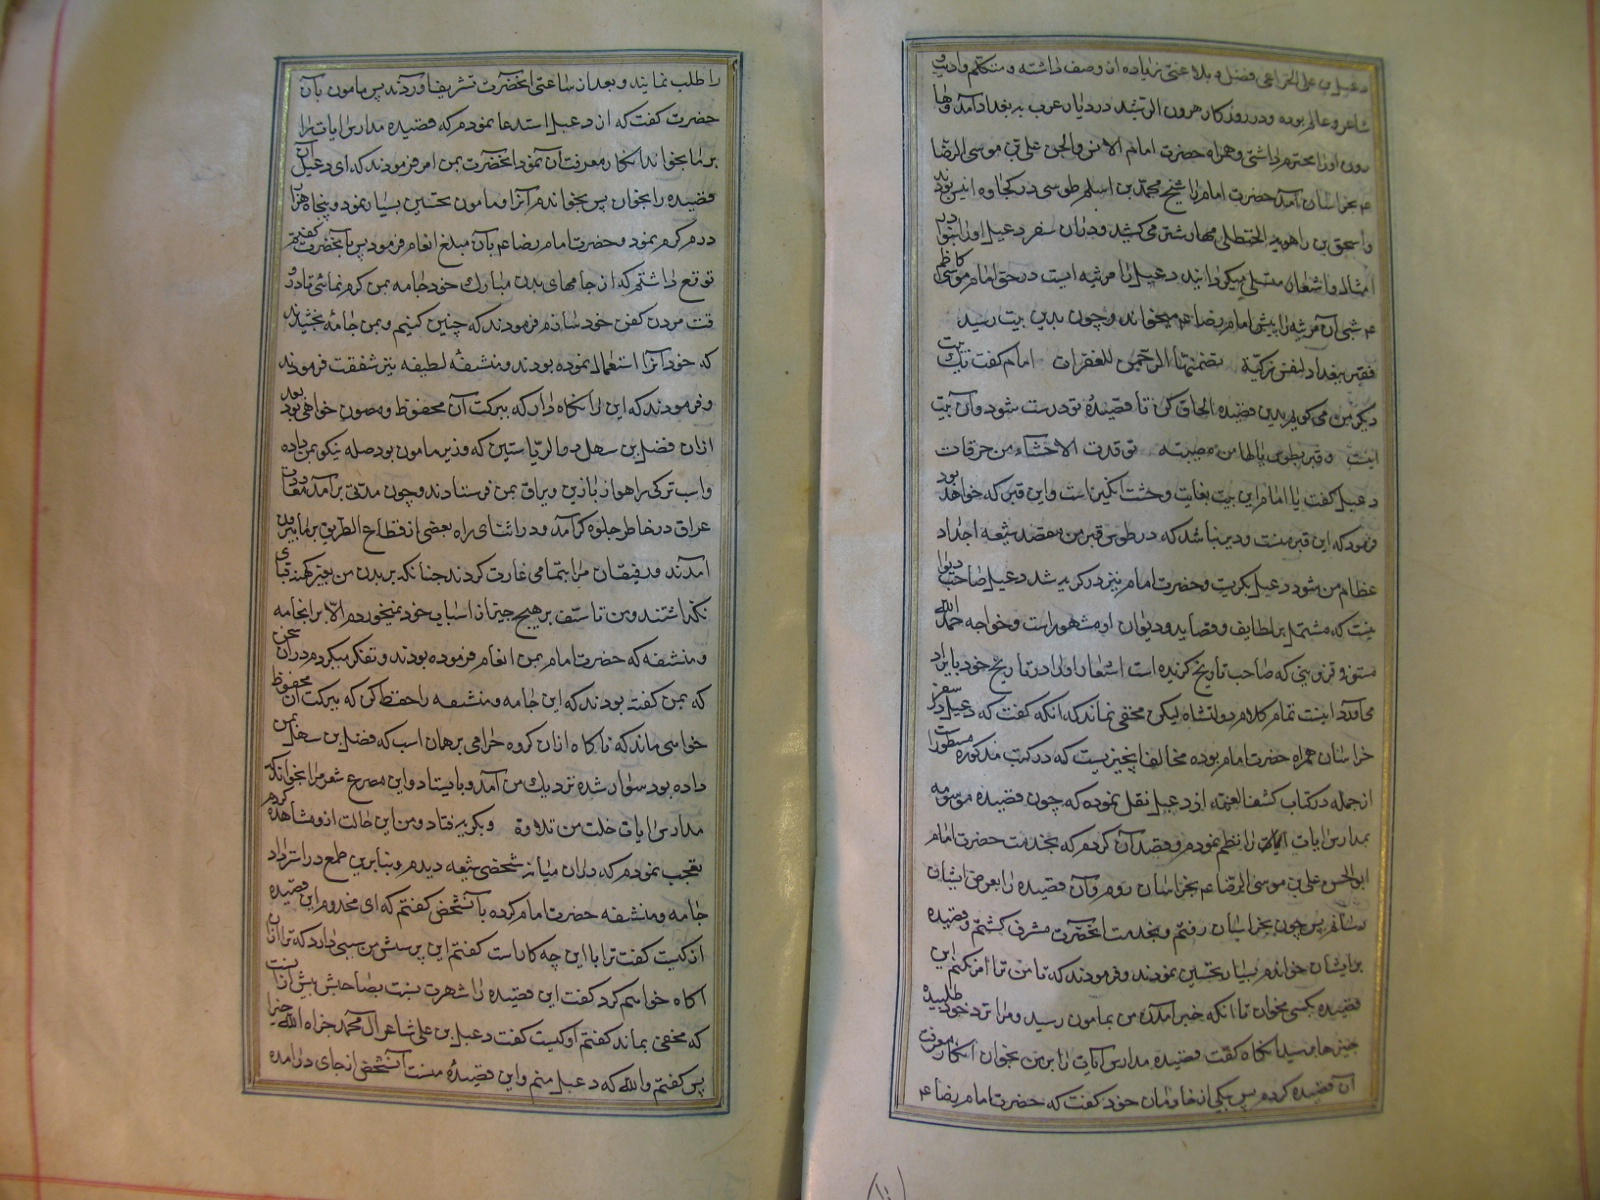 دعبل بن علی الخزاعی فضل و بلاغتی زیاده از وصف داشته و متکلم و ادیب و
شاعر و عالم بوده و در روزکار هرون الرشید در دیار عرب به بغداد آمد و ها
رون او را محترم داشتی و همراه حضرت امام الانس و الجن علی بن موسی الرضا
ع بخراسان آمد حضرت امام را شیخ محمد بن اسلم طوسی در کجاوه انیس بود
و اسحق بن راهویه الحنظلی مهار شتر می کشید و دران سفر دعبل او را
امثال و اشعار میکردانید دعبل را مرثیه ایست در حق امام موسی کاظم
ع شبی آن مرثیه را پیش امام رضا ع میخواند و چون بدین بیت رسید
فقبر ببغداد لنفس زکیة تضمنها الرحمن للغفرات امام کفت یک بیت
دیکر من می کویم بدین قصیده الحاق کن تا قصیدهٔ تو درست شود و آن بیت
اینست و قبر بطوس یالها من مصیبته توقدت الاحشاء من حرقات
دعبل کفت یا امام این بیت بغایت وحشت انکیز است و این قبر که خواهد بود
فرمود که این قبر منست و دیر نباشد که در طوس قبر من مقصد شیعه اجداد
عظام من شود دعبل بکریست و حضرت امام نیز در کریه شد دعبل صاحب دیوا
نیست که مشتمل بر لطایف و قصاید و دیوان او مشهور است و خواجه حمد الله
مستوفی قزوینی که صاحب تاریخ کزیده است اشعار او را در تاریخ خود بایراد
می آورد اینست تمام کلام دولتشاه لیکن مخفی نماند که آنکه کفت که دعبل در سفر
خراسان همراه حضرت امام بوده مخالف آنچیزیست که در کتب مذکوره مسطور است
ازجمله در کتاب کشف الغمه از دعبل نقل نموده که چون قصیده موسومه
بمدارس ایات را نظم نمودم و قصد آن کردم که بخدمت حضرت امام
ابو الحسن علی بن موسی الرضا ع بخراسان روم و آن قصیده را بعرض ایشان
رسانم پس چون بخراسان رفتم و بخدمت آنحضرت مشرف کشتم و قصیده
بر ایشان خواندم بسیار تحسین نمودند و فرمودند که تا من ترا امر نکنم این
قصیده بکسی مخوان تا آنکه خبر آمدن من بمامون رسید و مرا نزد خود طلبیده
خبرها پرسید آنکاه کفت قصیده مدارس آیات را بر من بخوان انکار معرفت
آن قصیده کردم پس بیکی از خادمان خود کفت که حضرت امام رضا ع
را طلب نمایند و بعد از ساعتی آنحضرت تشریف آوردند پس مامون بآن
حضرت کفت که از دعبل استدعا نمودم که قصیده مدارس ایات را
بر ما بخواند انکار معرفت آن نمود آنحضرت بمن امر فرمودند که ای دعبل آن
قصیده را بخوان پس بخواندم آنرا و مامون تحسین بسیار نمود و پنجاه هزار
درم کرم نمود و حضرت امام رضا ع بآن مبلغ انعام فرمود پس بآنحضرت کفتم
توقع داشتم که از جامهای بدن مبارک خود جامه بمن کرم نمائی تا در و
قت مردن کفن خود سازم فرمودند که چنین کنیم و بمن جامهٔ بخشیدند
که خود آنرا استعمال نموده بودند و منشفهٔ لطیفه نیز شفقت فرمودند
و فرمودند که این را نکاه دار که ببرکت آن محفوظ و مصون خواهی بود بعد
ازان فضل بن سهل ذو الریاستین که وزیر مامون بود صله نیکو بمن داده
و اسب ترکی راهوار با زین و یراق بمن فرستادند و چون مدتی برآمد معاودت
عراق در خاطر جلوه کر آمد و در اثنای راه بعضی از قطاع الطریق بر ما بیرون
آمدند و رفیقان مرا بتمامی غارت کردند چنانکه بر بدن من بغیر کهنه قبای
نکذاشتند و من تاسف بر هیچ چیز از اسباب خود نمیخوردم الا بر آنجامه
و منشفه که حضرت امام بمن انعام فرموده بودند و تفکر میکردم دران سخن
که بمن کفته بودند که این جامه و منشفه را حفظ کن که ببرکت آن محفوظ
خواهی ماند که ناکاه ازان کروه حرامی بر همان اسب که فضل بن سهل بمن
داده بود سوار شده نزدیک من آمد و بایستاد و این مصرع شعر مرا بخواند که
مدارس آیات خلت من تلاوة و بکریه افتاد و من این حالت ازو مشاهده کردم
تعجب نمودم که دران میان شخصی شیعه دیدم و بنابرین طمع در استرداد
جامه و منشفه حضرت امام کرده بآنشخص کفتم که ای مخدوم این قصیده
از کیست کفت ترا با این چه کار است کفتم این پرسش من سببی دارد که ترا ازان
آکاه خواهم کرد کفت این قصیده را شهرت بنسبت بصاحبش بیش ازانست
که مخفی بماند کفتم او کیست کفت دعبل بن علی شاعر آل محمد جزاه الله خیرا
پس کفتم والله که دعبل منم و این قصیدهٔ منست آنشخص از جای درآمده